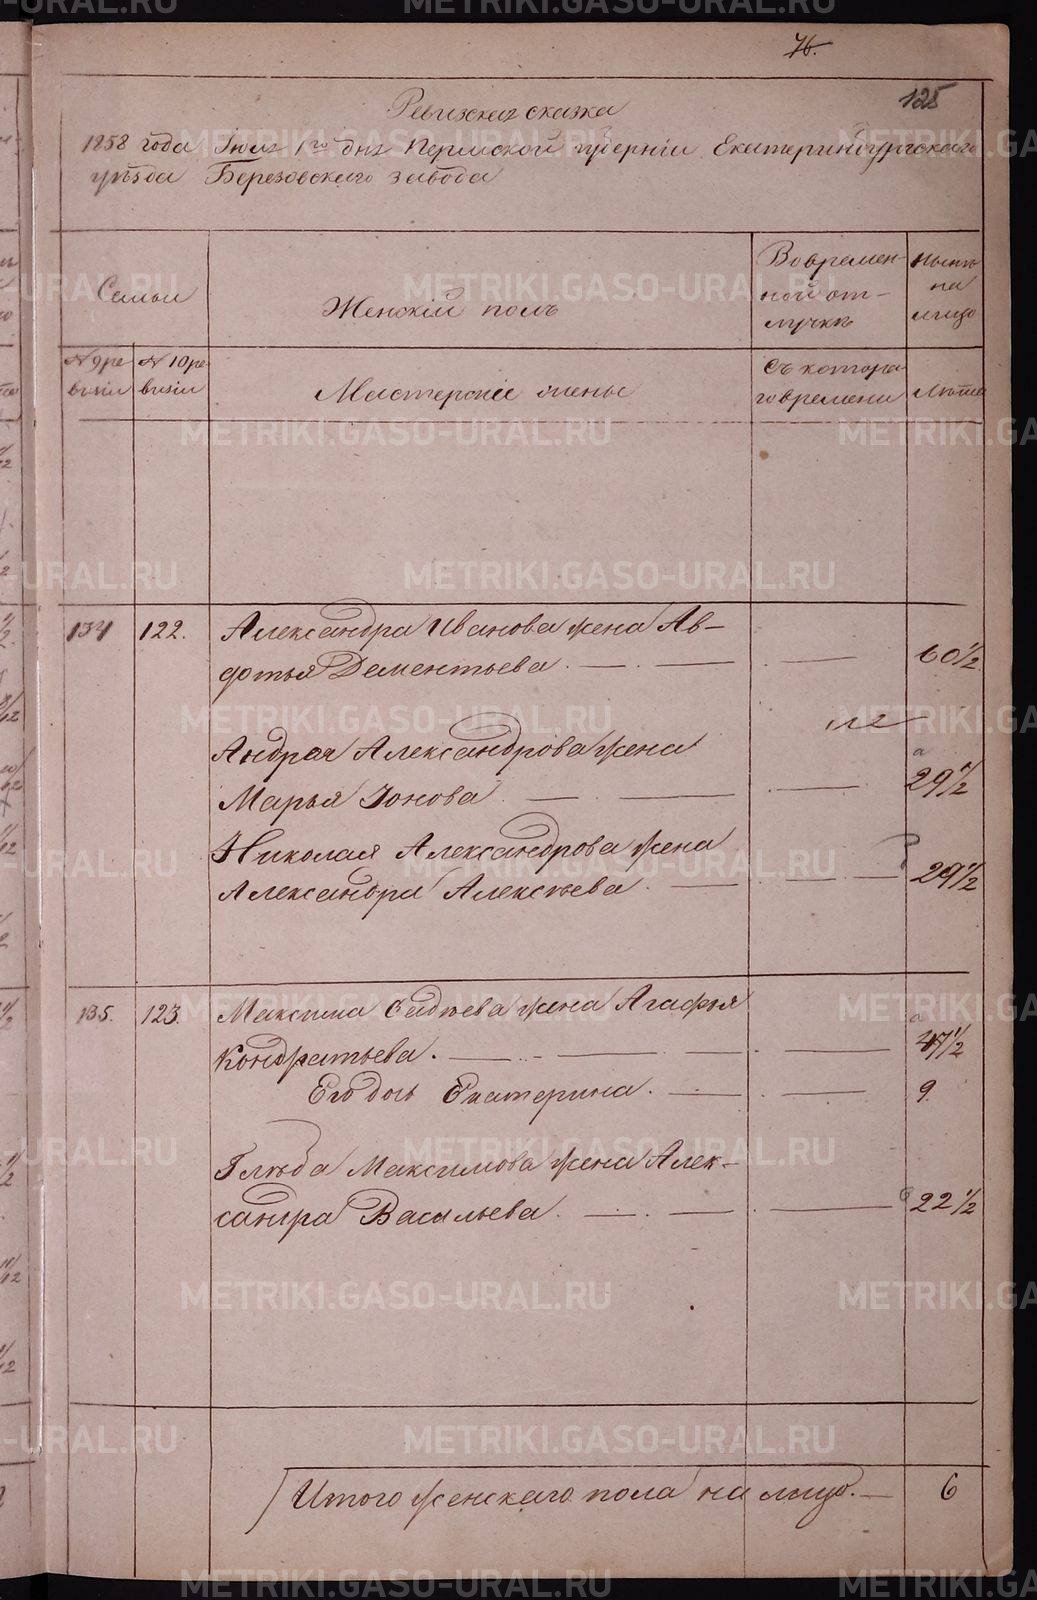 76.
125
Ревизская сказка
1858 года Июля 1го дня Пермской губерніи Екатеринбургскаго
уѣзда Березовскаго завода
Семьи
Женскій полъ
Во времен-
ной от-
лучкѣ
Нынѣ
на
лицо
№ 9 ре
визіи
№ 10 ре
визіи
Мастерскіе жены
Съ котора
го времени
Лѣта
134
122.
Александра Иванова жена Ав-
дотья Дементьева.
60 1/2
Андрея Александрова жена
Марья Іонова
29 1/2
Николая Александрова жена
Александра Алексѣева
29 1/2
135.
123.
Максима жена Агафья
Кондратьева.
47 1/2
Его дочь Екатерина.
9.
Глѣба Максимова жена Алек-
сандра Васильева.
22 1/2
Итого женскаго пола на лицо.
6
METRIKI.GASO-URAL.RU